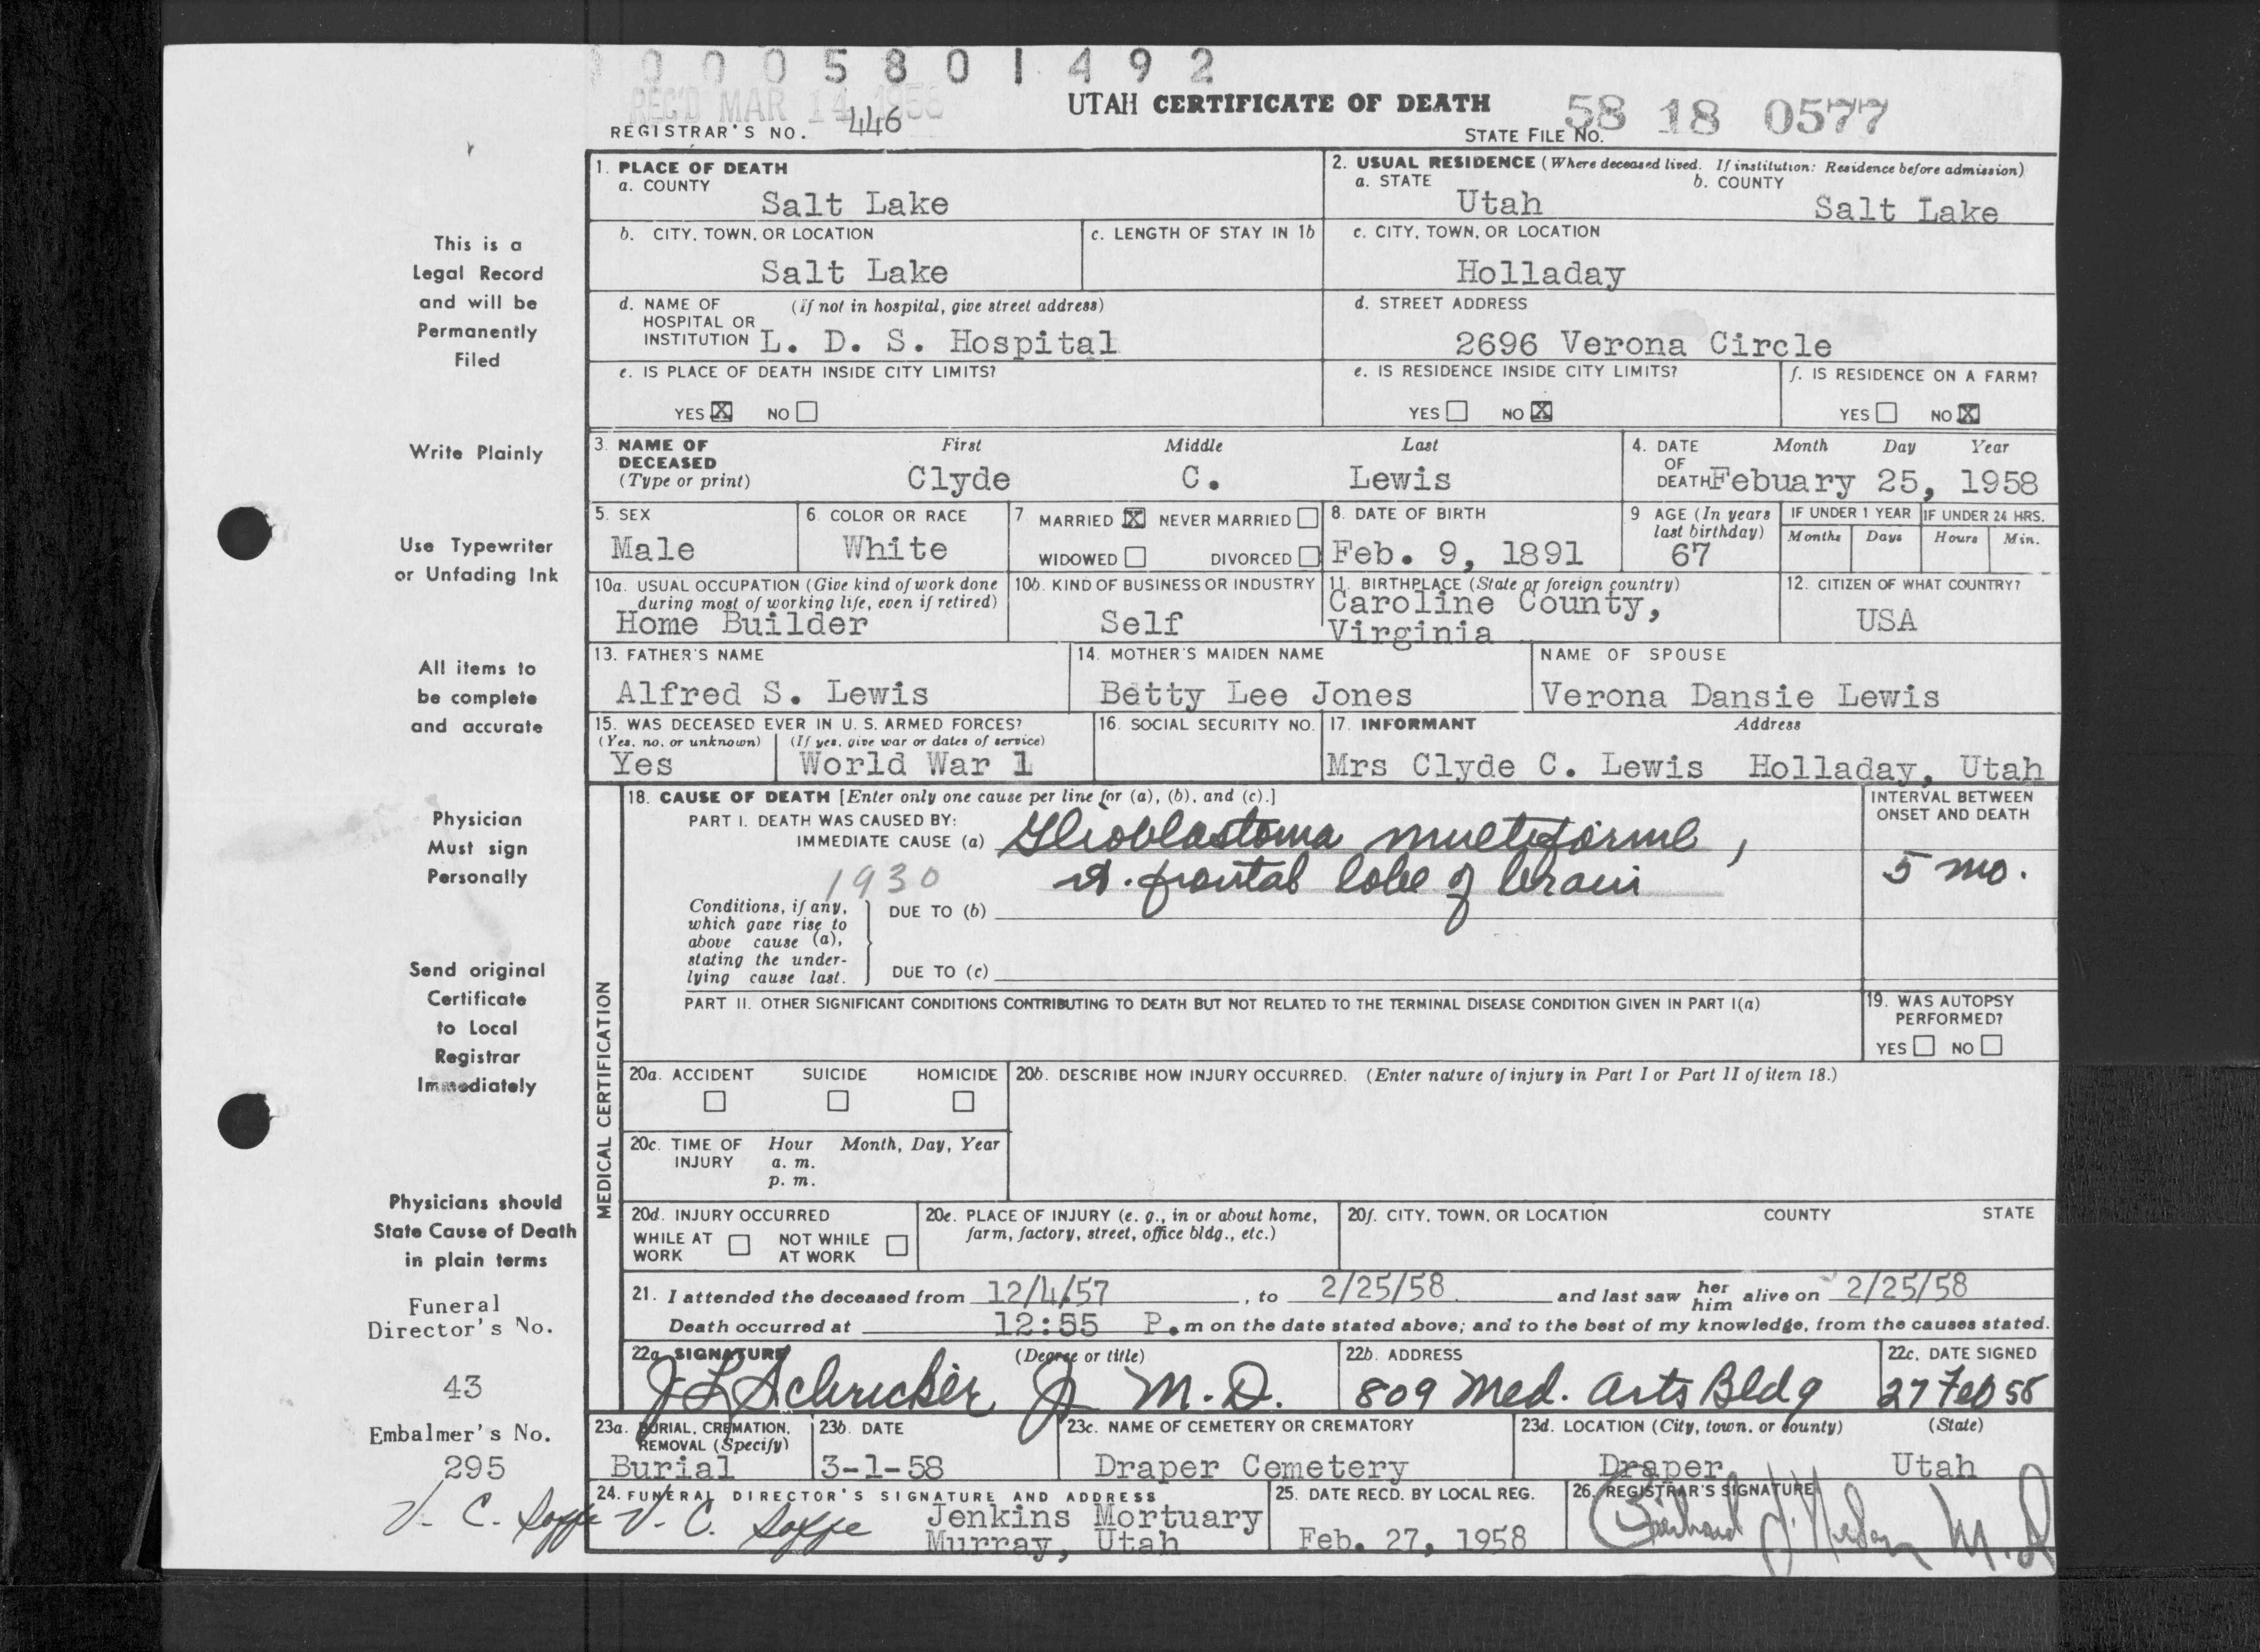 0 0 0 5 8 0 1 4 9 2
REC'D MAR 14 1958
UTAH CERTIFICATE OF DEATH
REGISTRAR'S NO. 446
STATE FILE NO. 58 18 0577
This is a
Legal Record
and will be
Permanently
Filed
Write Plainly
Use Typewriter
or Unfading Ink
All items to
be complete
and accurate
Physician
Must sign
Personally
Send original
Certificate
to Local
Registrar
Immediately
Physicians should
State Cause of Death
in plain terms
Funeral
Director's No.
43
Embalmer's No.
295
V. C.
1. PLACE OF DEATH
a. COUNTY
Salt Lake
2. USUAL RESIDENCE (Where deceased lived. If institution: Residence before admission)
a. STATE b. COUNTY
Utah Salt Lake
b. CITY, TOWN, OR LOCATION
Salt Lake
c. LENGTH OF STAY IN 1b
c. CITY, TOWN, OR LOCATION
Holladay
d. NAME OF (If not in hospital, give street address)
HOSPITAL OR
INSTITUTION L. D. S. Hospital
d. STREET ADDRESS
2696 Verona Circle
e. IS PLACE OF DEATH INSIDE CITY LIMITS?
YES X NO
e. IS RESIDENCE INSIDE CITY LIMITS?
YES NO X
f. IS RESIDENCE ON A FARM?
YES NO X
3. NAME OF First Middle Last
DECEASED
(Type or print) Clyde C. Lewis
4. DATE Month Day Year
OF
DEATH Febuary 25, 1958
5. SEX
Male
6. COLOR OR RACE
White
7 MARRIED X NEVER MARRIED
WIDOWED DIVORCED
8. DATE OF BIRTH
Feb. 9, 1891
9 AGE (In years
last birthday)
67
IF UNDER 1 YEAR IF UNDER 24 HRS.
Months Days Hours Min.
10a. USUAL OCCUPATION (Give kind of work done
during most of working life, even if retired)
Home Builder
10b. KIND OF BUSINESS OR INDUSTRY
Self
11. BIRTHPLACE (State or foreign country)
Caroline County,
Virginia
12. CITIZEN OF WHAT COUNTRY?
USA
13. FATHER'S NAME
Alfred S. Lewis
14. MOTHER'S MAIDEN NAME
Betty Lee Jones
NAME OF SPOUSE
Verona Dansie Lewis
15. WAS DECEASED EVER IN U. S. ARMED FORCES?
(Yes, no, or unknown) (If yes, give war or dates of service)
Yes World War 1
16. SOCIAL SECURITY NO.
17. INFORMANT Address
Mrs Clyde C. Lewis Holladay, Utah
MEDICAL CERTIFICATION
18. CAUSE OF DEATH [Enter only one cause per line for (a), (b), and (c).]
PART I. DEATH WAS CAUSED BY:
IMMEDIATE CAUSE (a) Glioblastoma multiforme,
1930 rt. frontal lobe of brain
INTERVAL BETWEEN
ONSET AND DEATH
5 mo.
Conditions, if any,
which gave rise to
above cause (a),
stating the under-
lying cause last.
DUE TO (b)
DUE TO (c)
PART II. OTHER SIGNIFICANT CONDITIONS CONTRIBUTING TO DEATH BUT NOT RELATED TO THE TERMINAL DISEASE CONDITION GIVEN IN PART I(a)
19. WAS AUTOPSY
PERFORMED?
YES NO
20a. ACCIDENT SUICIDE HOMICIDE
20b. DESCRIBE HOW INJURY OCCURRED. (Enter nature of injury in Part I or Part II of item 18.)
20c. TIME OF Hour Month, Day, Year
INJURY a. m.
p. m.
20d. INJURY OCCURRED
WHILE AT NOT WHILE
WORK AT WORK
20e. PLACE OF INJURY (e. g., in or about home,
farm, factory, street, office bldg., etc.)
20f. CITY, TOWN, OR LOCATION COUNTY STATE
21. I attended the deceased from 12/4/57, to 2/25/58 and last saw her him alive on 2/25/58
Death occurred at 12:55 P.m on the date stated above; and to the best of my knowledge, from the causes stated.
22a. SIGNATURE (Degree or title)
J L Schricker Jr M.D.
22b. ADDRESS
809 Med. Arts Bldg
22c. DATE SIGNED
27 Feb 58
23a. BURIAL, CREMATION,
REMOVAL (Specify)
Burial
23b. DATE
3-1-58
23c. NAME OF CEMETERY OR CREMATORY
Draper Cemetery
23d. LOCATION (City, town, or county) (State)
Draper Utah
24. FUNERAL DIRECTOR'S SIGNATURE AND ADDRESS
V. C. Jenkins Mortuary
Murray, Utah
25. DATE RECD. BY LOCAL REG.
Feb. 27, 1958
26. REGISTRAR'S SIGNATURE
M.D